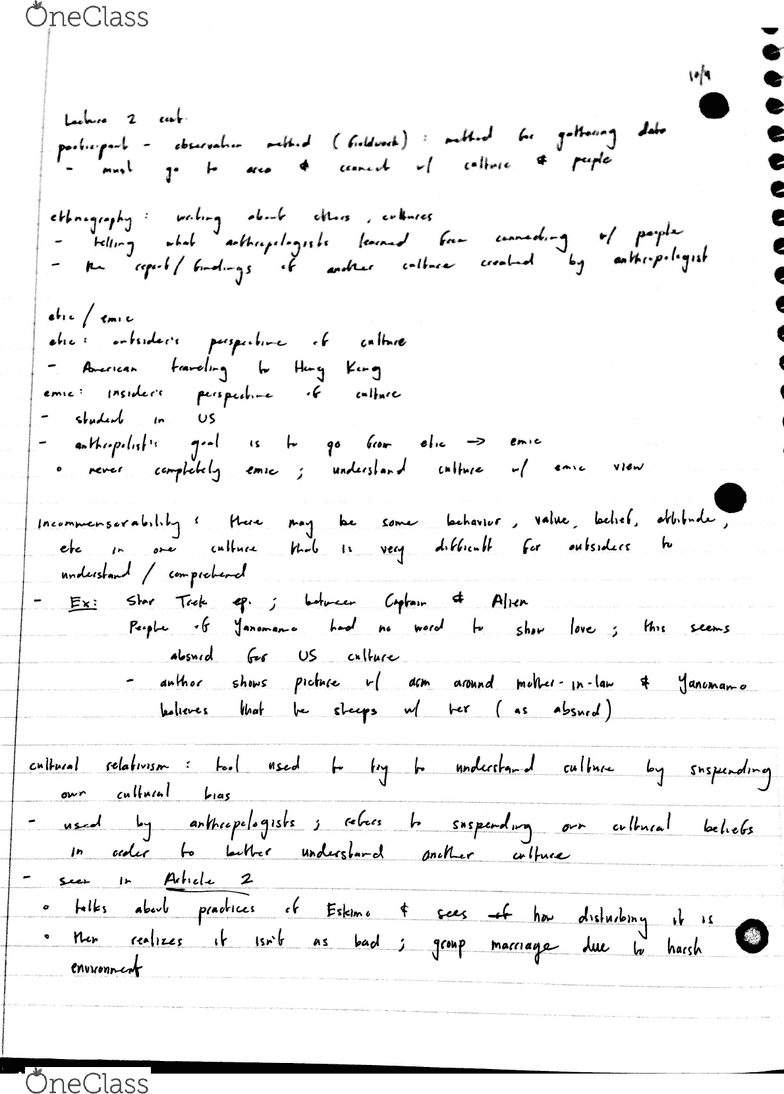 OneClass
10/9
Lecture 2 cont.
participant - observation method (fieldwork) : method for gathering data
- must go to area & connect w/ culture & people
ethnography : writing about others, cultures
- telling what anthropologists learned from connecting w/ people
- the report/findings of another culture created by anthropologist
etic / emic
etic : outsider's perspective of culture
- American traveling to Hong Kong
emic : insider's perspective of culture
- student in US
- anthropolist's goal is to go from etic → emic
• never completely emic ; understand culture w/ emic view
incommensurability : there may be some behavior, value, belief, attitude,
etc in one culture that is very difficult for outsiders to
understand / comprehend
- Ex: Star Trek ep. ; between Captain & Alien
People of Yanomamo had no word to show love ; this seems
absurd for US culture
- author shows picture w/ arm around mother-in-law & Yanomamo
believes that he sleeps w/ her (as absurd)
cultural relativism : tool used to try to understand culture by suspending
own cultural bias
- used by anthropologists ; refers to suspending own cultural beliefs
in order to better understand another culture
- seen in Article 2
• talks about practices of Eskimo & sees how disturbing it is
• then realizes it isn't as bad ; group marriage due to harsh
environment
OneClass